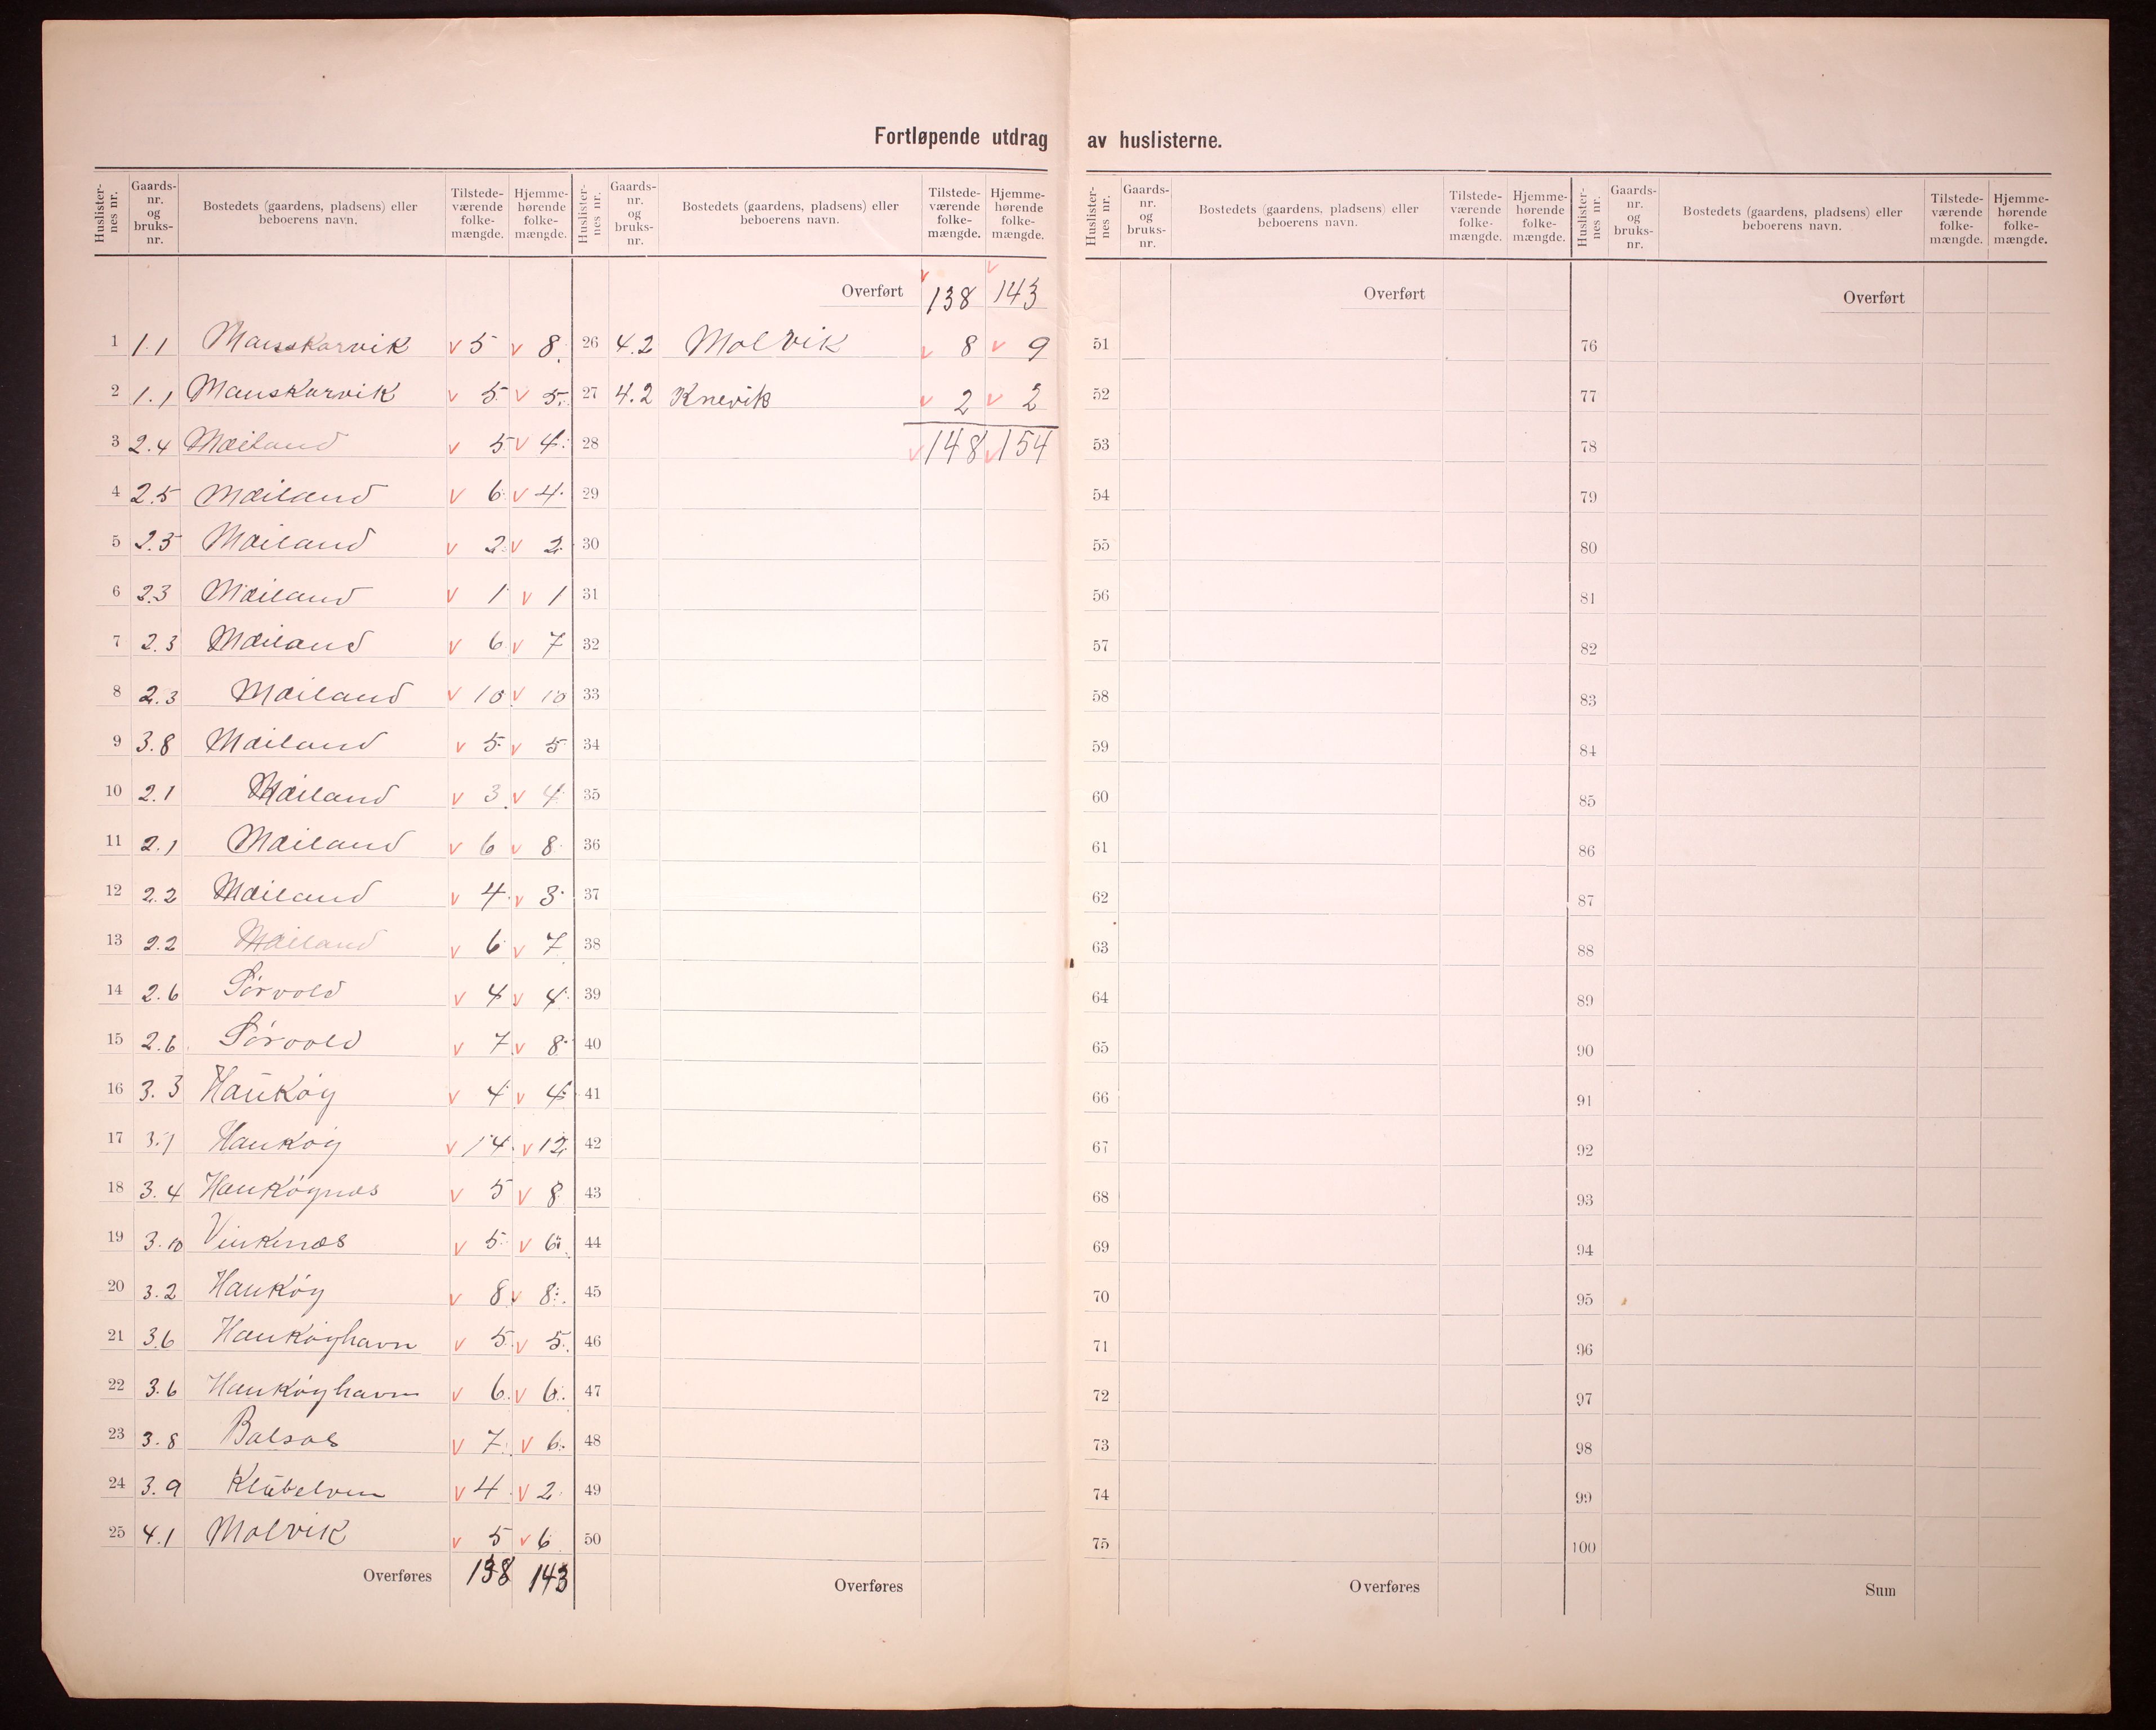 Fortløpende utdrag av huslisterne.
Huslisternes nr. Gaards-nr. og bruks-nr. Bostedets (gaardens, pladsens) eller beboerens navn. Tilstede-værende folke-mængde. Hjemme-hørende folke-mængde.
1 1.1 Mauskarvik v 5 v 8
2 1.1 Mauskarvik v 5 v 5
3 2.4 Mæiland v 5 v 4
4 2.5 Mæiland v 6 v 4
5 2.5 Mæiland v 2 v 2
6 2.3 Mæiland v 1 v 1
7 2.3 Mæiland v 6 v 7
8 2.3 Mæiland v 10 v 10
9 3.8 Mæiland v 5 v 5
10 2.1 Mæiland v 3 v 4
11 2.1 Mæiland v 6 v 8
12 2.2 Mæiland v 4 v 3
13 2.2 Mæiland v 6 v 7
14 2.6 Sørvold v 4 v 4
15 2.6 Sørvold v 7 v 8
16 3.3 Haukøy v 4 v 4
17 3.1 Haukøy v 14 v 12
18 3.4 Haukøynæs v 5 v 8
19 3.10 Vinkenæs v 5 v 6
20 3.2 Haukøy v 8 v 8
21 3.6 Haukøyhavn v 5 v 5
22 3.6 Haukøyhavn v 6 v 6
23 3.8 Balsnes v 7 v 6
24 3.9 Klubelven v 4 v 2
25 4.1 Molvik v 5 v 6
Overføres 138 143
Huslisternes nr. Gaards-nr. og bruks-nr. Bostedets (gaardens, pladsens) eller beboerens navn. Tilstede-værende folke-mængde. Hjemme-hørende folke-mængde.
Overført v 138 v 143
26 4.2 Molvik v 8 v 9
27 4.2 Knevik v 2 v 2
28 v 148 v 154
29
30
31
32
33
34
35
36
37
38
39
40
41
42
43
44
45
46
47
48
49
50
Overføres
Huslisternes nr. Gaards-nr. og bruks-nr. Bostedets (gaardens, pladsens) eller beboerens navn. Tilstede-værende folke-mængde. Hjemme-hørende folke-mængde.
Overført
51
52
53
54
55
56
57
58
59
60
61
62
63
64
65
66
67
68
69
70
71
72
73
74
75
Overføres
Huslisternes nr. Gaards-nr. og bruks-nr. Bostedets (gaardens, pladsens) eller beboerens navn. Tilstede-værende folke-mængde. Hjemme-hørende folke-mængde.
Overført
76
77
78
79
80
81
82
83
84
85
86
87
88
89
90
91
92
93
94
95
96
97
98
99
100
Sum